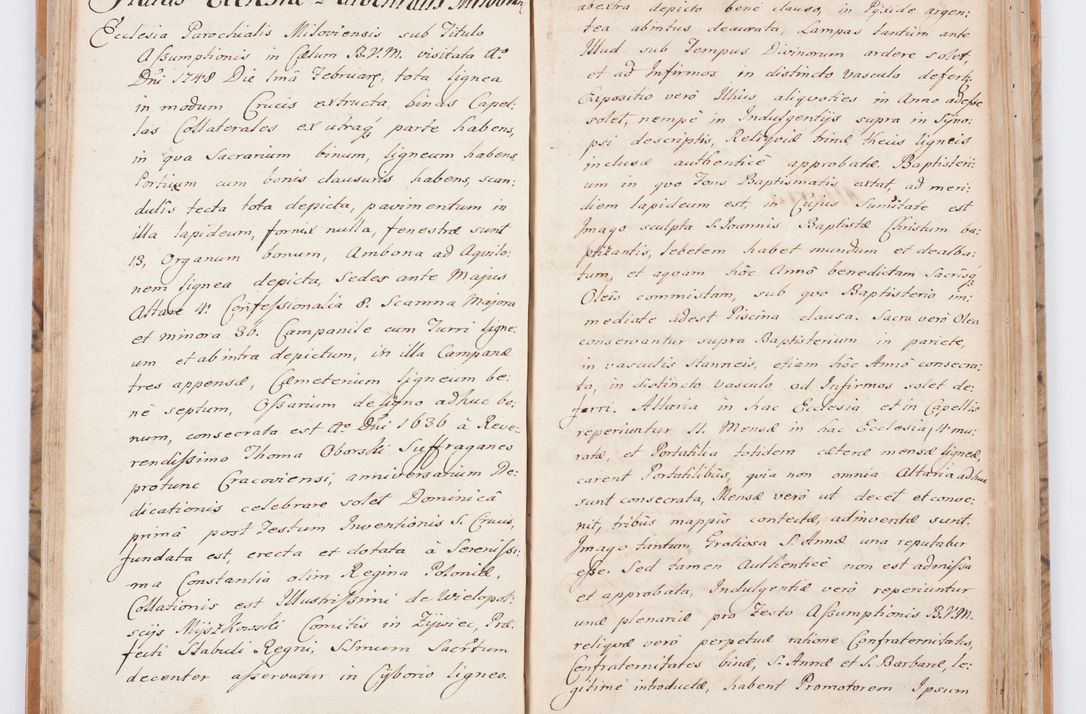 Status Ecclesiæ
Ecclesia Parochialis Miloviensis sub Titulo
Aſsumptionis in Cælum B.V.M. visitata Aᵒ
Dñi 1748 Die Imâ Februarÿ, tota lignea
in modum Crucis extructa, binas Capel:
las Collaterales ex utraq̃ parte habens,
in qva Sacrarium binum, ligneum habens
Portium cum bonis clausuris habens, scan:
dulis tecta tota depicta, pavimentum in
illa lapideum, fornix nulla, fenestræ sunt
13, Organum bonum, Ambona ad Aqvilo:
nem lignea depicta, Sedes ante Majus
Altare 4. Confeſsionalia 8. Scamna Majora
et minora 36. Campanile cum Turri ligne:
um et ab intra depictum, in illa Campanæ
tres appensæ, Cæmeterium ligneum be:
nè septum, Oſsarium de ligno adhuc bo:
num, consecrata est Aᵒ Dñi 1636 à Reve:
rendiſsimo Thoma Oborski Suffraganeo
protunc Cracoviensi, anniversarium De:
dicationis celebrare solet Dominicâ
primâ post Festum Inventionis S. Crucis,
fundata est, erecta et dotata à Sereniſsi:
ma Constantia olim Regina Poloniæ,
Collationis est Illustriſsimi de Wielopol:
scijs Myszkowski Comitis in Zywiec, Præ
fecti Stabuli Regni, SSmum Sacr̃tum
decenter aſservatur in Cyborio ligneo.
abextra depicto benè clauso, in Pÿxide argen:
tea abintus deaurata, Lampas tantum ante
Illud sub Tempus Divinorum ardere solet,
et ad Infirmos in distincto vasculo defert̃.
Expositio verò Illius, aliqvoties in Anno adeſse
solet, nempè in Indulgentÿs supra in Syno:
psi descriptis, Reliqviæ trinæ thecis ligneis
inclusæ authenticè approbatæ. Baptisteri:
um in qvo Fons Baptismatis extat, ad meri:
diem lapideum est, in Cujus Sumitate est
Imago sculpta S. Ioannis Baptistæ Christum ba:
ptizantis, lebetem habet mundum et dealba:
tum, et aqvam hôc Annô benedictam Sacrisq̃
Oleis commistam, sub qvo Baptisterio im:
mediate adest Piscina clausa. Sacra verò Olea
conservantur supra Baptisterium in pariete,
in vasculis stanneis, etiam hôc Annô consecra:
ta, in distincto vasculo ad Infirmos solet de:
ferri. Altaria in hac Ecclesia, et in Capellis
reperiuntur 11. Mensæ in hac Ecclesia, 4. mu:
ratæ, et Portatilia totidem cæteræ mensæ ligneæ,
carent Portatilibus, qvia non omnia Altaria adhuc
sunt consecrata, Mensæ verò ut decet et conve:
nit, tribus mappis contectæ, adinventæ sunt.
Imago tantum, Gratiosa S. Annæ una reputatur
eſse. Sed tamen Authenticè non est admiſsa
et approbata, Indulgentiæ verò reperiuntur
unæ plenariæ pro Festo Aſsumptionis B.V.M.
reliqvæ verò perpetuæ ratione Confraternitatis,
Confraternitates binæ, S. Annæ et S. Barbaræ, le:
gitimè introductæ, habent Promotorem Ipsum